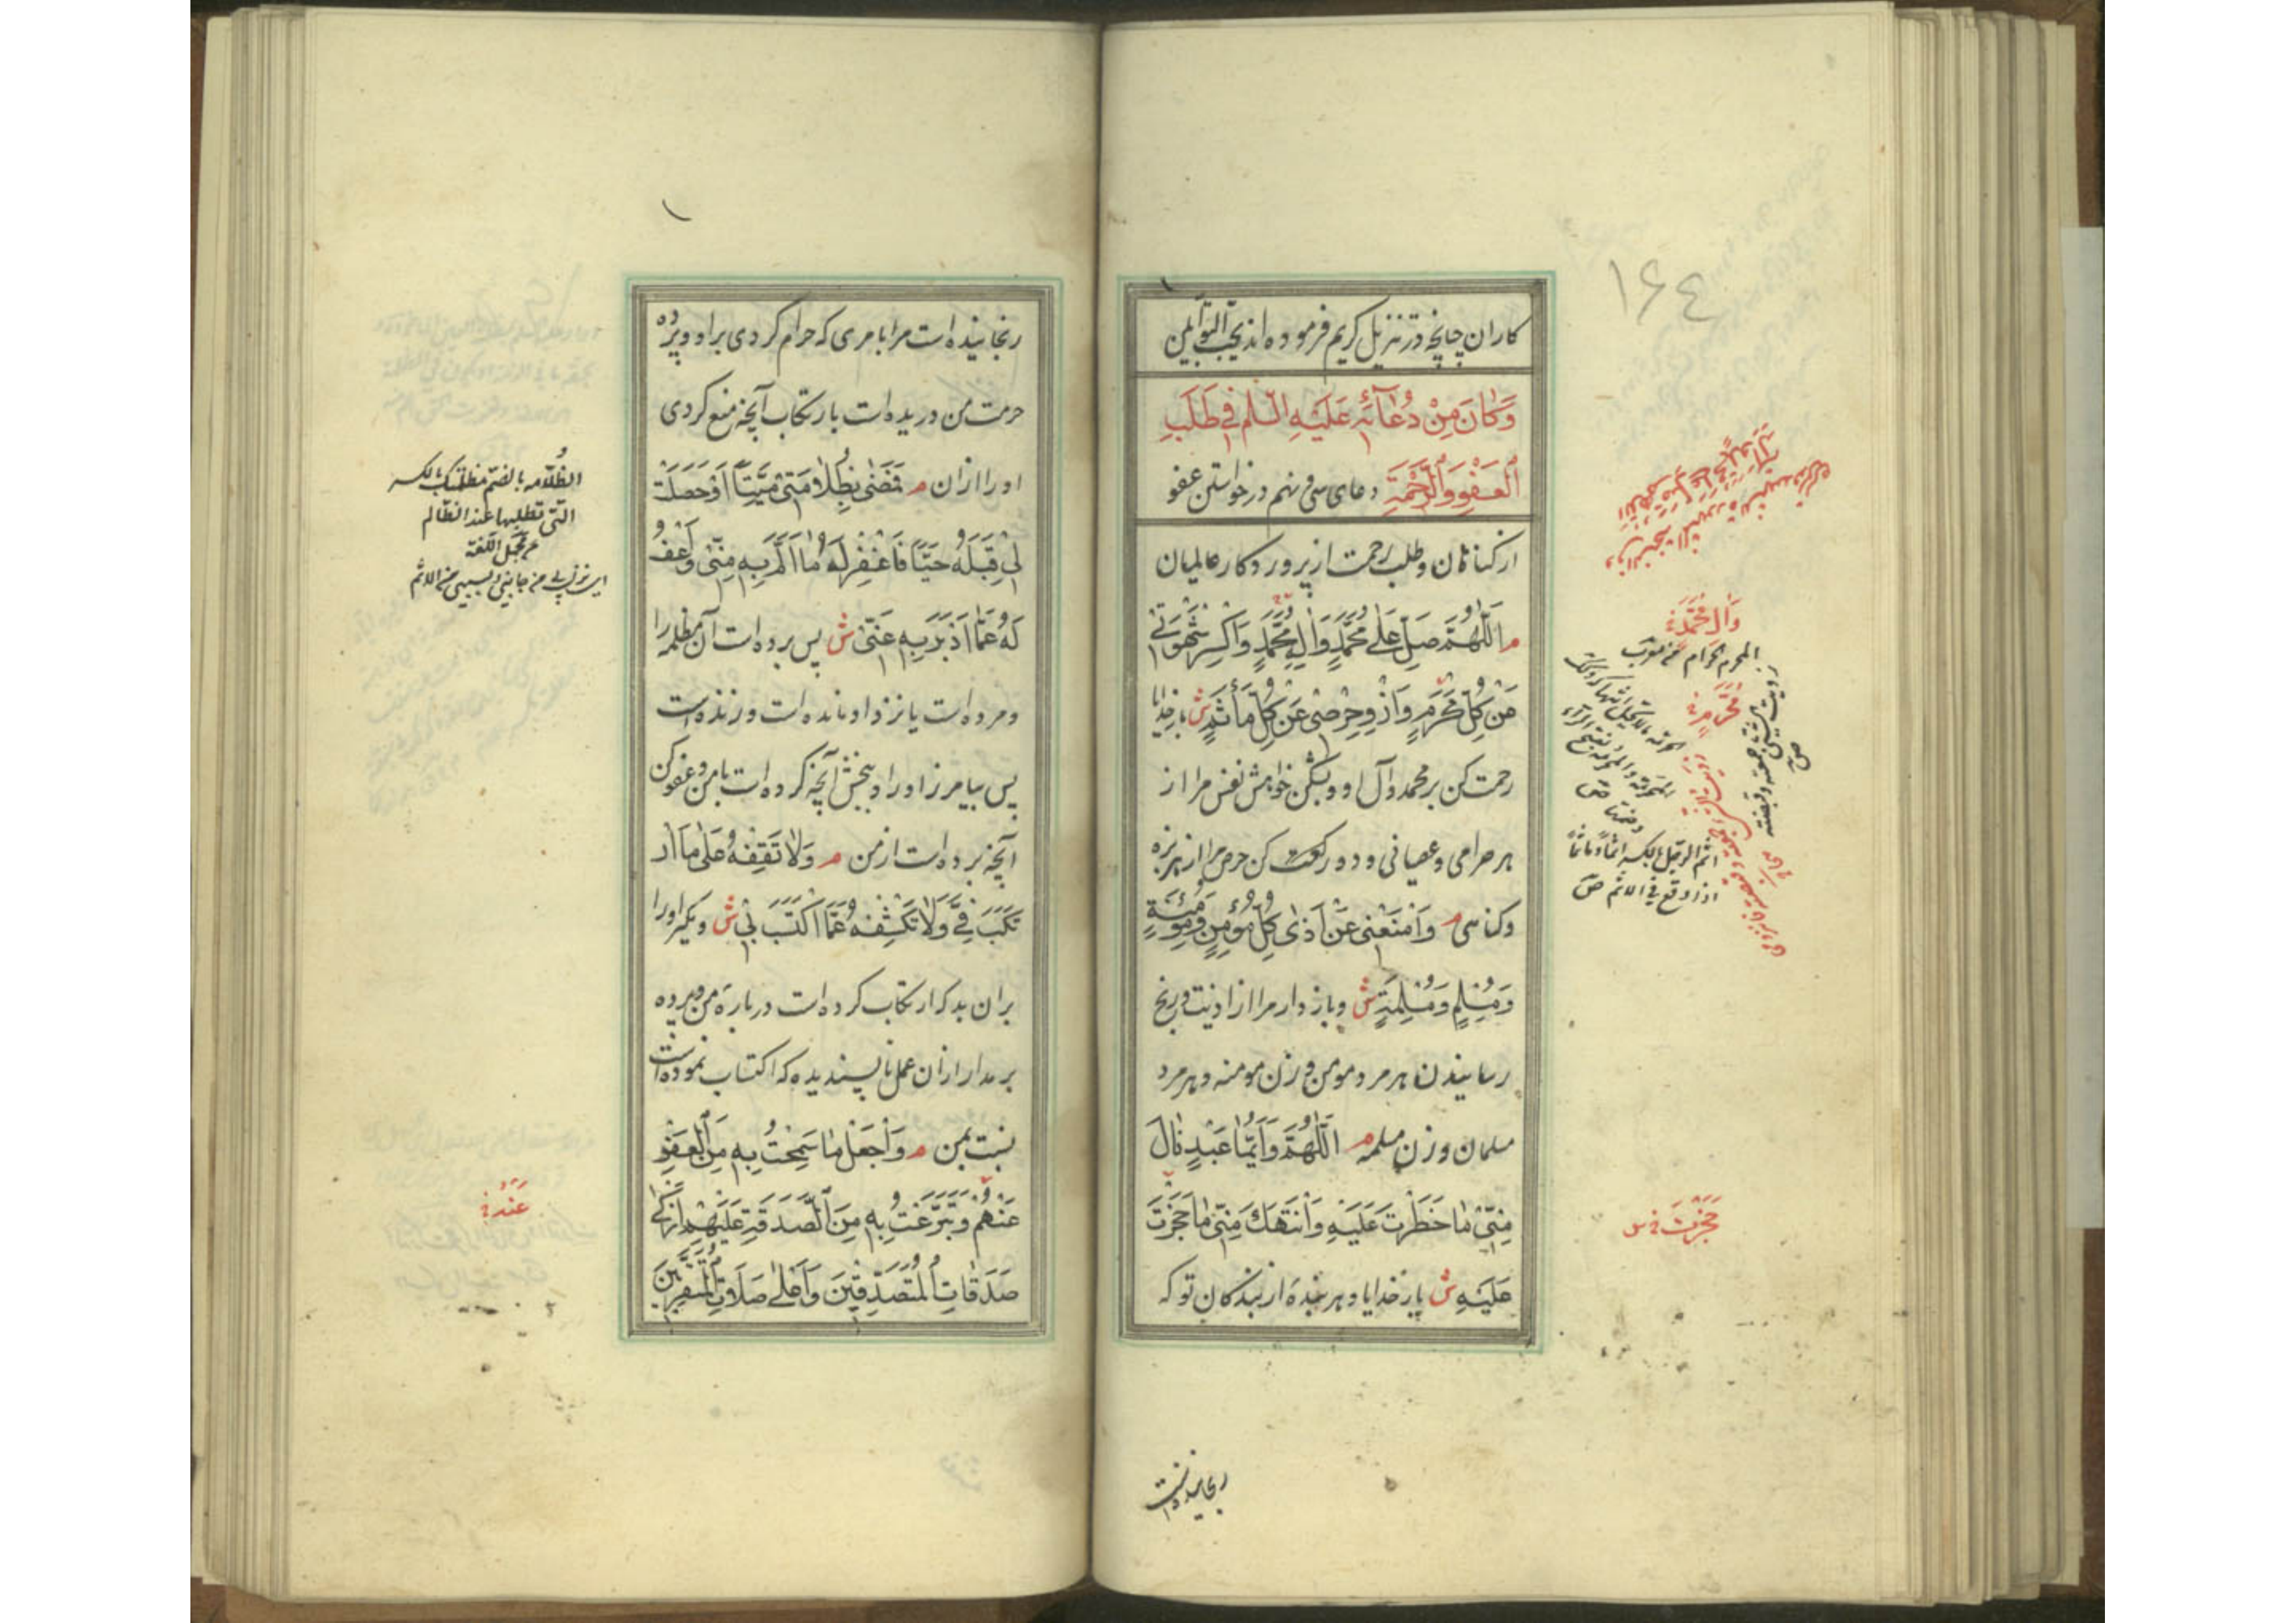 ۱۶۴
کاران چنانچه در تنزیل کریم فرموده اند یحب التوابین
وَكَانَ مِنْ دُعَآئِهِ عَلَيْهِ السَّلَم فِي طَلَبِ
الْعَفْوِ وَالرَّحْمَةِ دعای سی و نهم درخواستن عفو
از کناهان و طلب رحمت از پرورد کار عالمیان
م اَللّٰهُمَّ صَلِّ عَلٰى مُحَمَّدٍ وَاٰلِ مُحَمَّدٍ وَاكْسِرْ شَهْوَتٖى
عَنْ كُلِّ مَحْرَمٍ وَازْوِ حِرْصٖى عَنْ كُلِّ مَأْثَمٍ ش بار خدایا
رحمت کن بر محمد و آل او و بشکن خواهش نفس مرا از
هر حرامی و عصیانی و دور کن حرص مرا از هر بزه
و کناهی م وَامْنَعْنٖى عَنْ اَذٰى كُلِّ مُؤْمِنٍ وَمُؤْمِنَةٍ
وَمُسْلِمٍ وَمُسْلِمَةٍ ش و باز دار مرا از اذیت و رنج
رسانیدن هر مرد مومن و زن مومنه و هر مرد
مسلمان و زن مسلمه م اَللّٰهُمَّ وَاَيُّمٰا عَبْدٍ نٰالَ
مِنّٖى مٰا حَظَرْتَ عَلَيْهِ وَانْتَهَكَ مِنّٖى مٰا حَجَزْتَ
عَلَيْهِ ش بار خدایا و هر بندهٔ از بندکان تو که
وَاٰلِ مُحَمَّدٍ
مُحَرَّمٍ
اثم الرجل بالکسر اثماً و مأثماً
اذا وقع فی الاثم ص
حَجَرْتَ س
رنجانیده است
رنجانیده است مرا بامری که حرام کردی بر او و پردهٔ
حرمت من دریده است بارتکاب آنچه منع کردی
او را ازان م فَمَضٰى بِظُلٰامَتٖى مَيِّتًا اَوْ حَصَلَتْ
لٖى قِبَلَهُ حَيًّا فَاغْفِرْ لَهُ مٰا اَلَمَّ بِهٖ مِنّٖى وَاعْفُ
لَهُ عَمّٰا اَدْبَرَ بِهٖ عَنّٖى ش پس برده است آن مظلمه را
و مرده است یا نزد او مانده است و زنده است
پس بیامرز او را و ببخش آنچه کرده است با من و عفو کن
آنچه برده است از من م وَلٰا تَقِفْهُ عَلٰى مَا ارْ
تَكَبَ فِيَّ وَلٰا تَكْشِفْهُ عَمَّا اكْتَسَبَ بٖى ش و مکیر او را
بران بد که ارتکاب کرده است دربارهٔ من و پرده
بر مدار ازان عمل ناپسندیده که اکتساب نموده است
نسبت بمن م وَاجْعَلْ مٰا سَمَحْتُ بِهٖ مِنَ الْعَفْوِ
عَنْهُمْ وَتَبَرَّعْتُ بِهٖ مِنَ الصَّدَقَةِ عَلَيْهِمْ اَزْكٰى
صَدَقٰاتِ الْمُتَصَدِّقٖينَ وَاَعْلٰى صِلٰاتِ الْمُتَقَرِّبٖينَ
الظُلامه بالضم مظلمتک بالکسر
التی تطلبها عند الظالم
مجمل اللغة
عَنْهُ